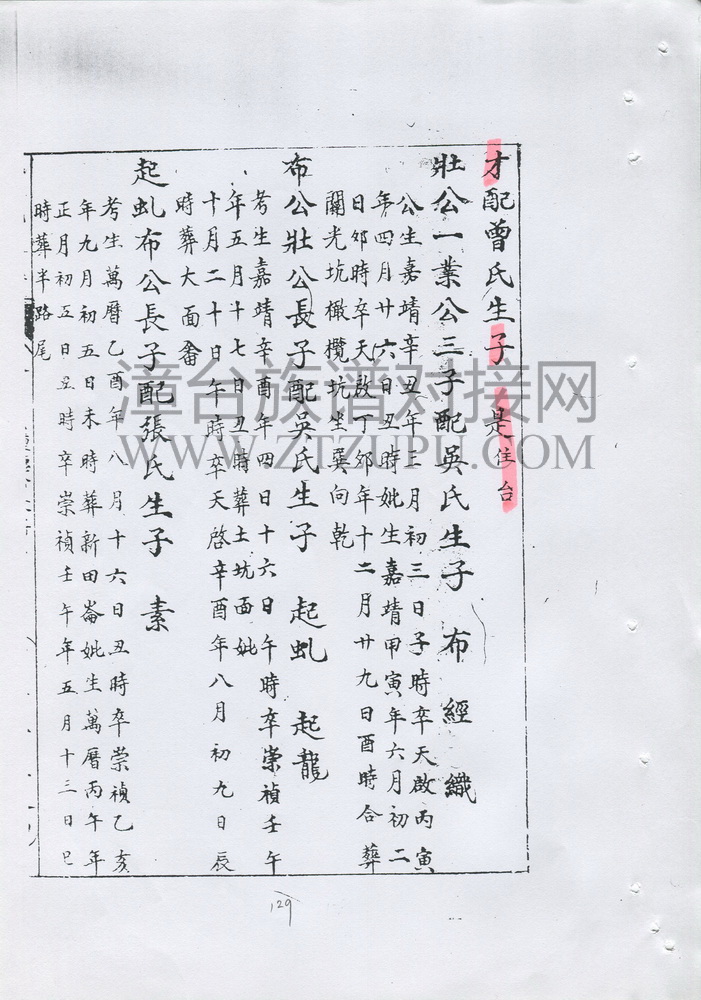 才配曾氏生子 是住台
壯公一業公三子配吳氏生子 布 經 織
公生嘉靖辛丑年三月初三日子時卒天啟丙寅
年四月廿六日丑時妣生嘉靖甲寅年六月初二
日卯時卒天啟丁卯年十二月廿九日酉時合葬
關光坑橄欖坑坐巽向乾
布公壯公長子配吳氏生子 起虬 起龍
考生嘉靖辛酉年四日十六日午時卒崇禎壬午
年五月十七日丑時葬土坑面妣
十月二十日午時卒天啓辛酉年八月初九日辰
時葬大面畲
起虬布公長子配張氏生子 素
考生萬曆乙酉年八月十六日丑時卒崇禎乙亥
年九月初五日未時葬新田崙妣生萬曆丙午年
正月初五日丑時卒崇禎壬午年五月十三日巳
時葬半路尾
漳台族谱对接网
WWW.ZTZUPU.COM
129